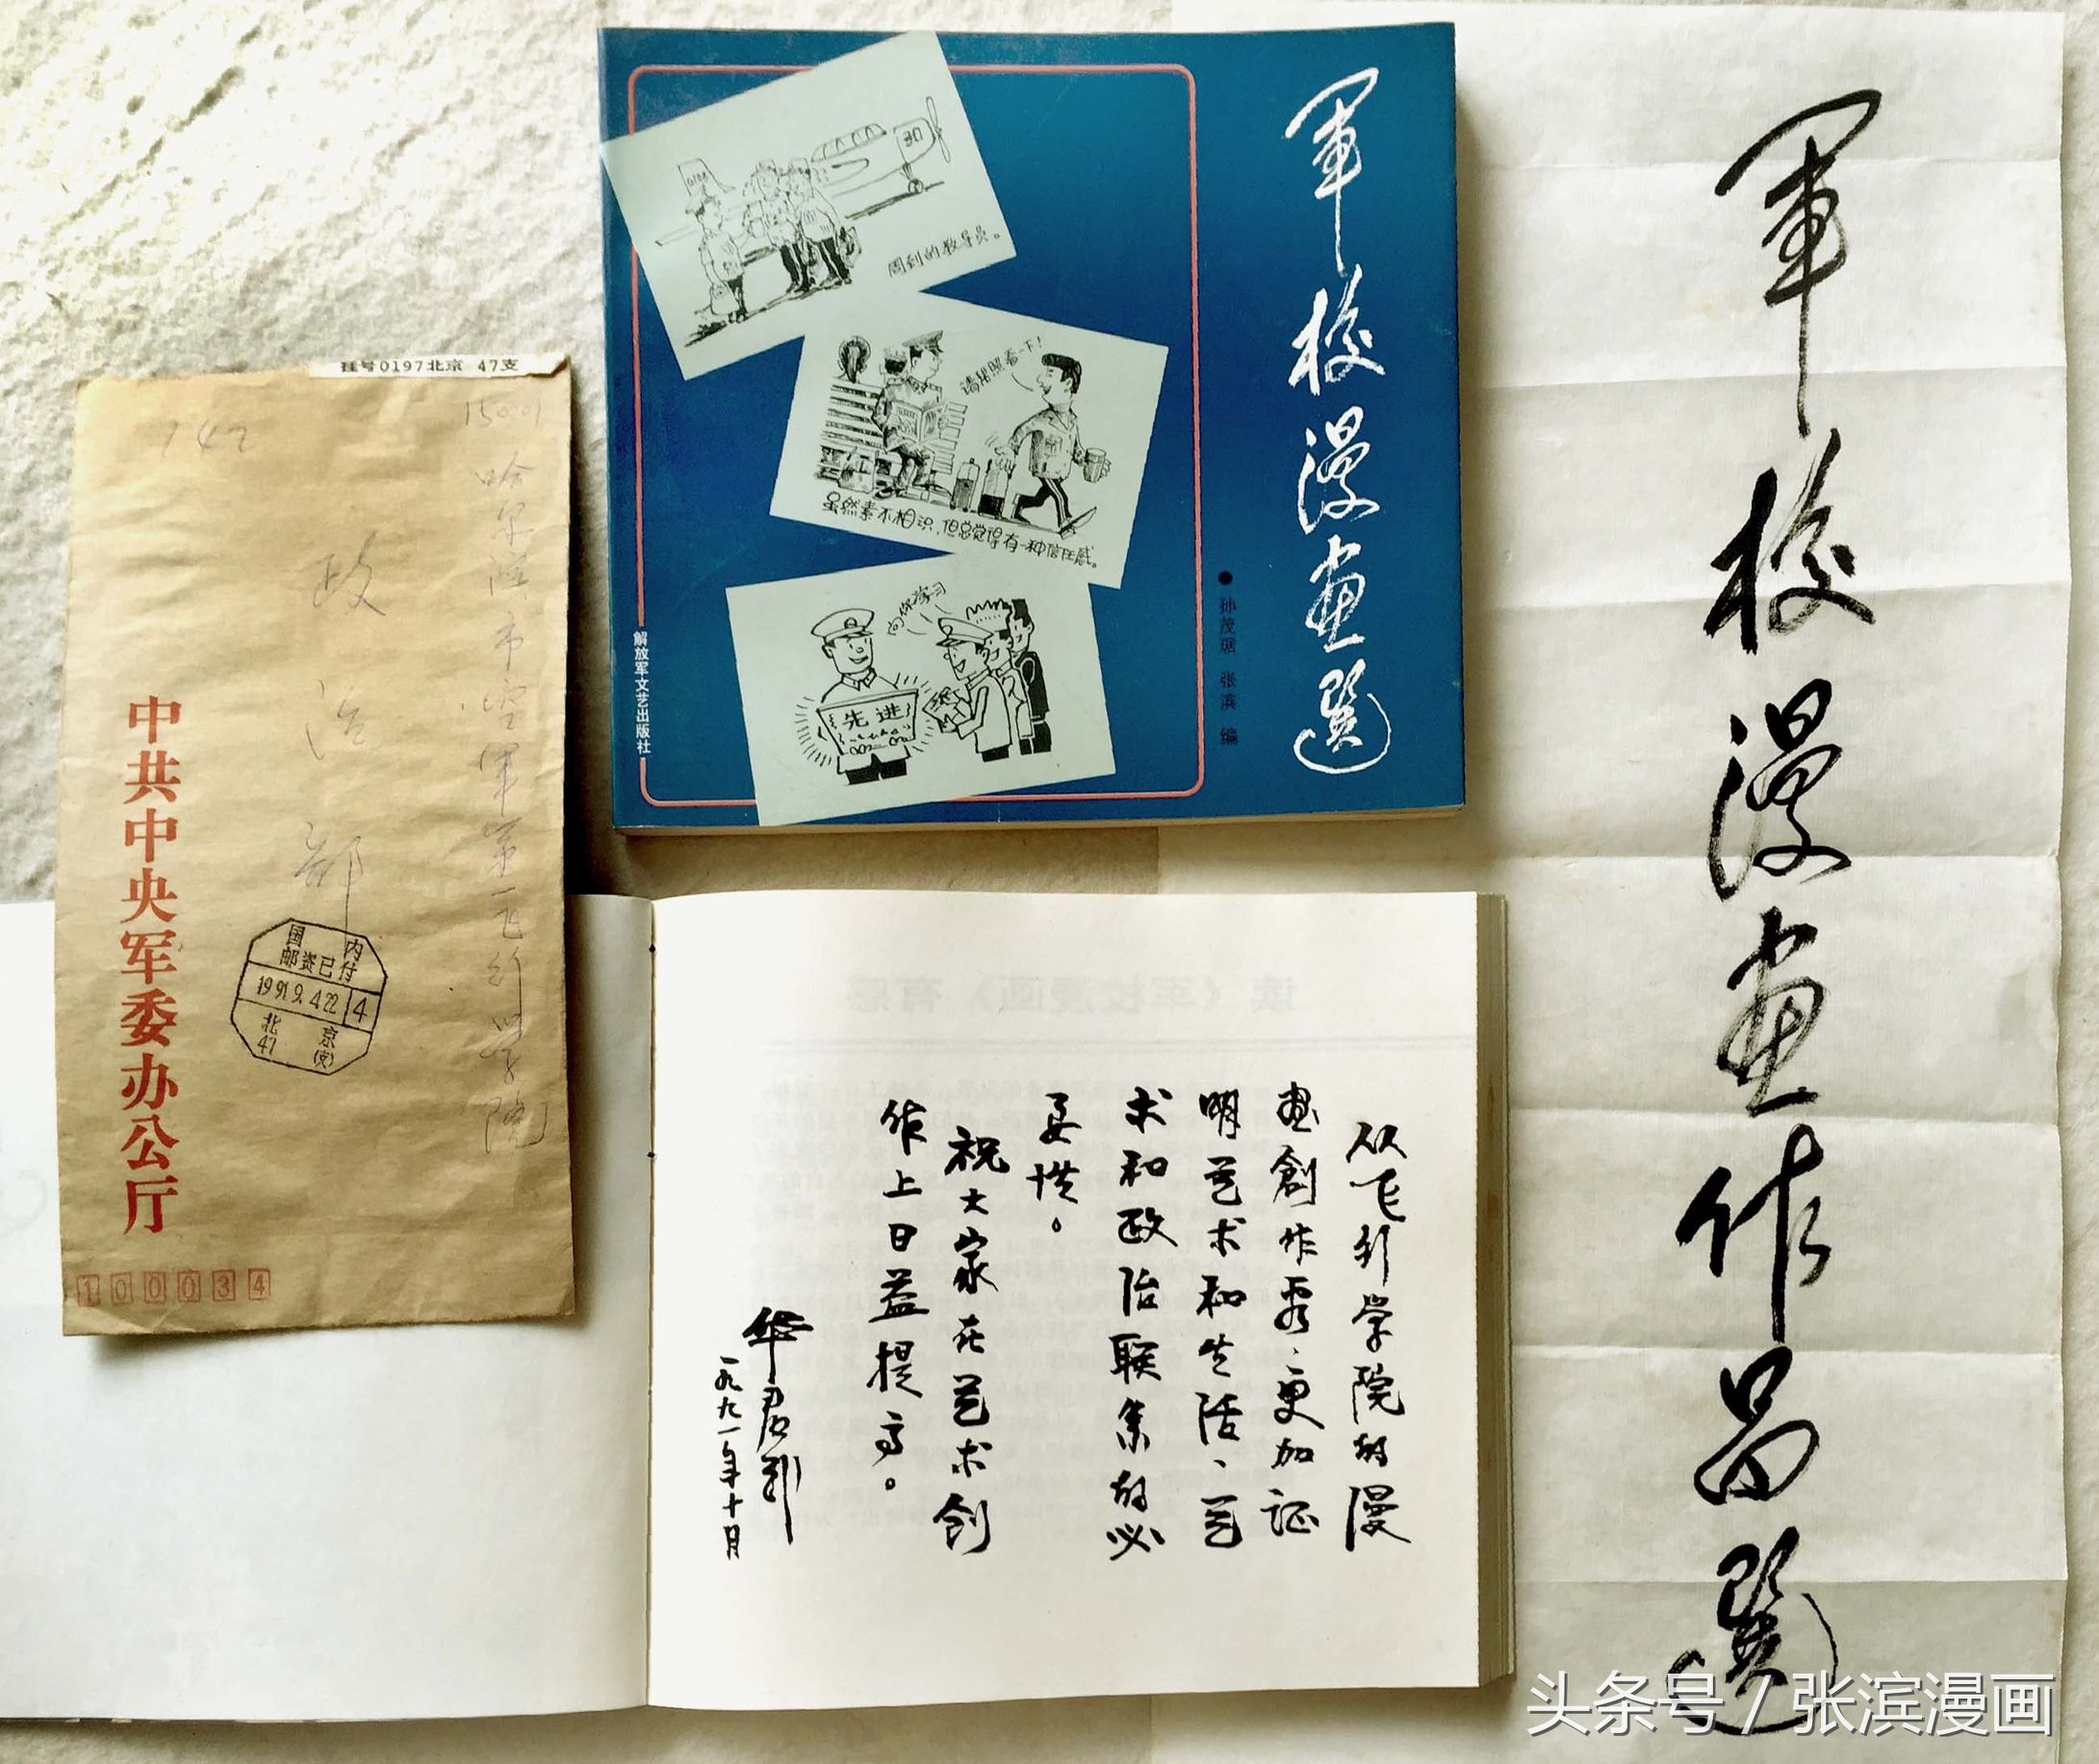 挂号0197北京 47支
150001
142
哈尔滨市空军第一飞行学院
政治部
中共中央军委办公厅
100034
国内
邮资已付
1991.9.4.22
4
北京
47
(支)
軍校漫画選
●孙茂琚 张滨 编
解放军文艺出版社
周到的教导员。
请帮照看一下!
虽然素不相识,但总觉得有一种信任感。
向你学习
先进
读《军校漫画》有感
从飞行学院的漫
画創作看,更加证
明艺术和生活、艺
术和政治联系的必
要性。
祝大家在艺术創
作上日益提高。
华君武
一九九一年十月
軍校漫画作品選
头条号 / 张滨漫画